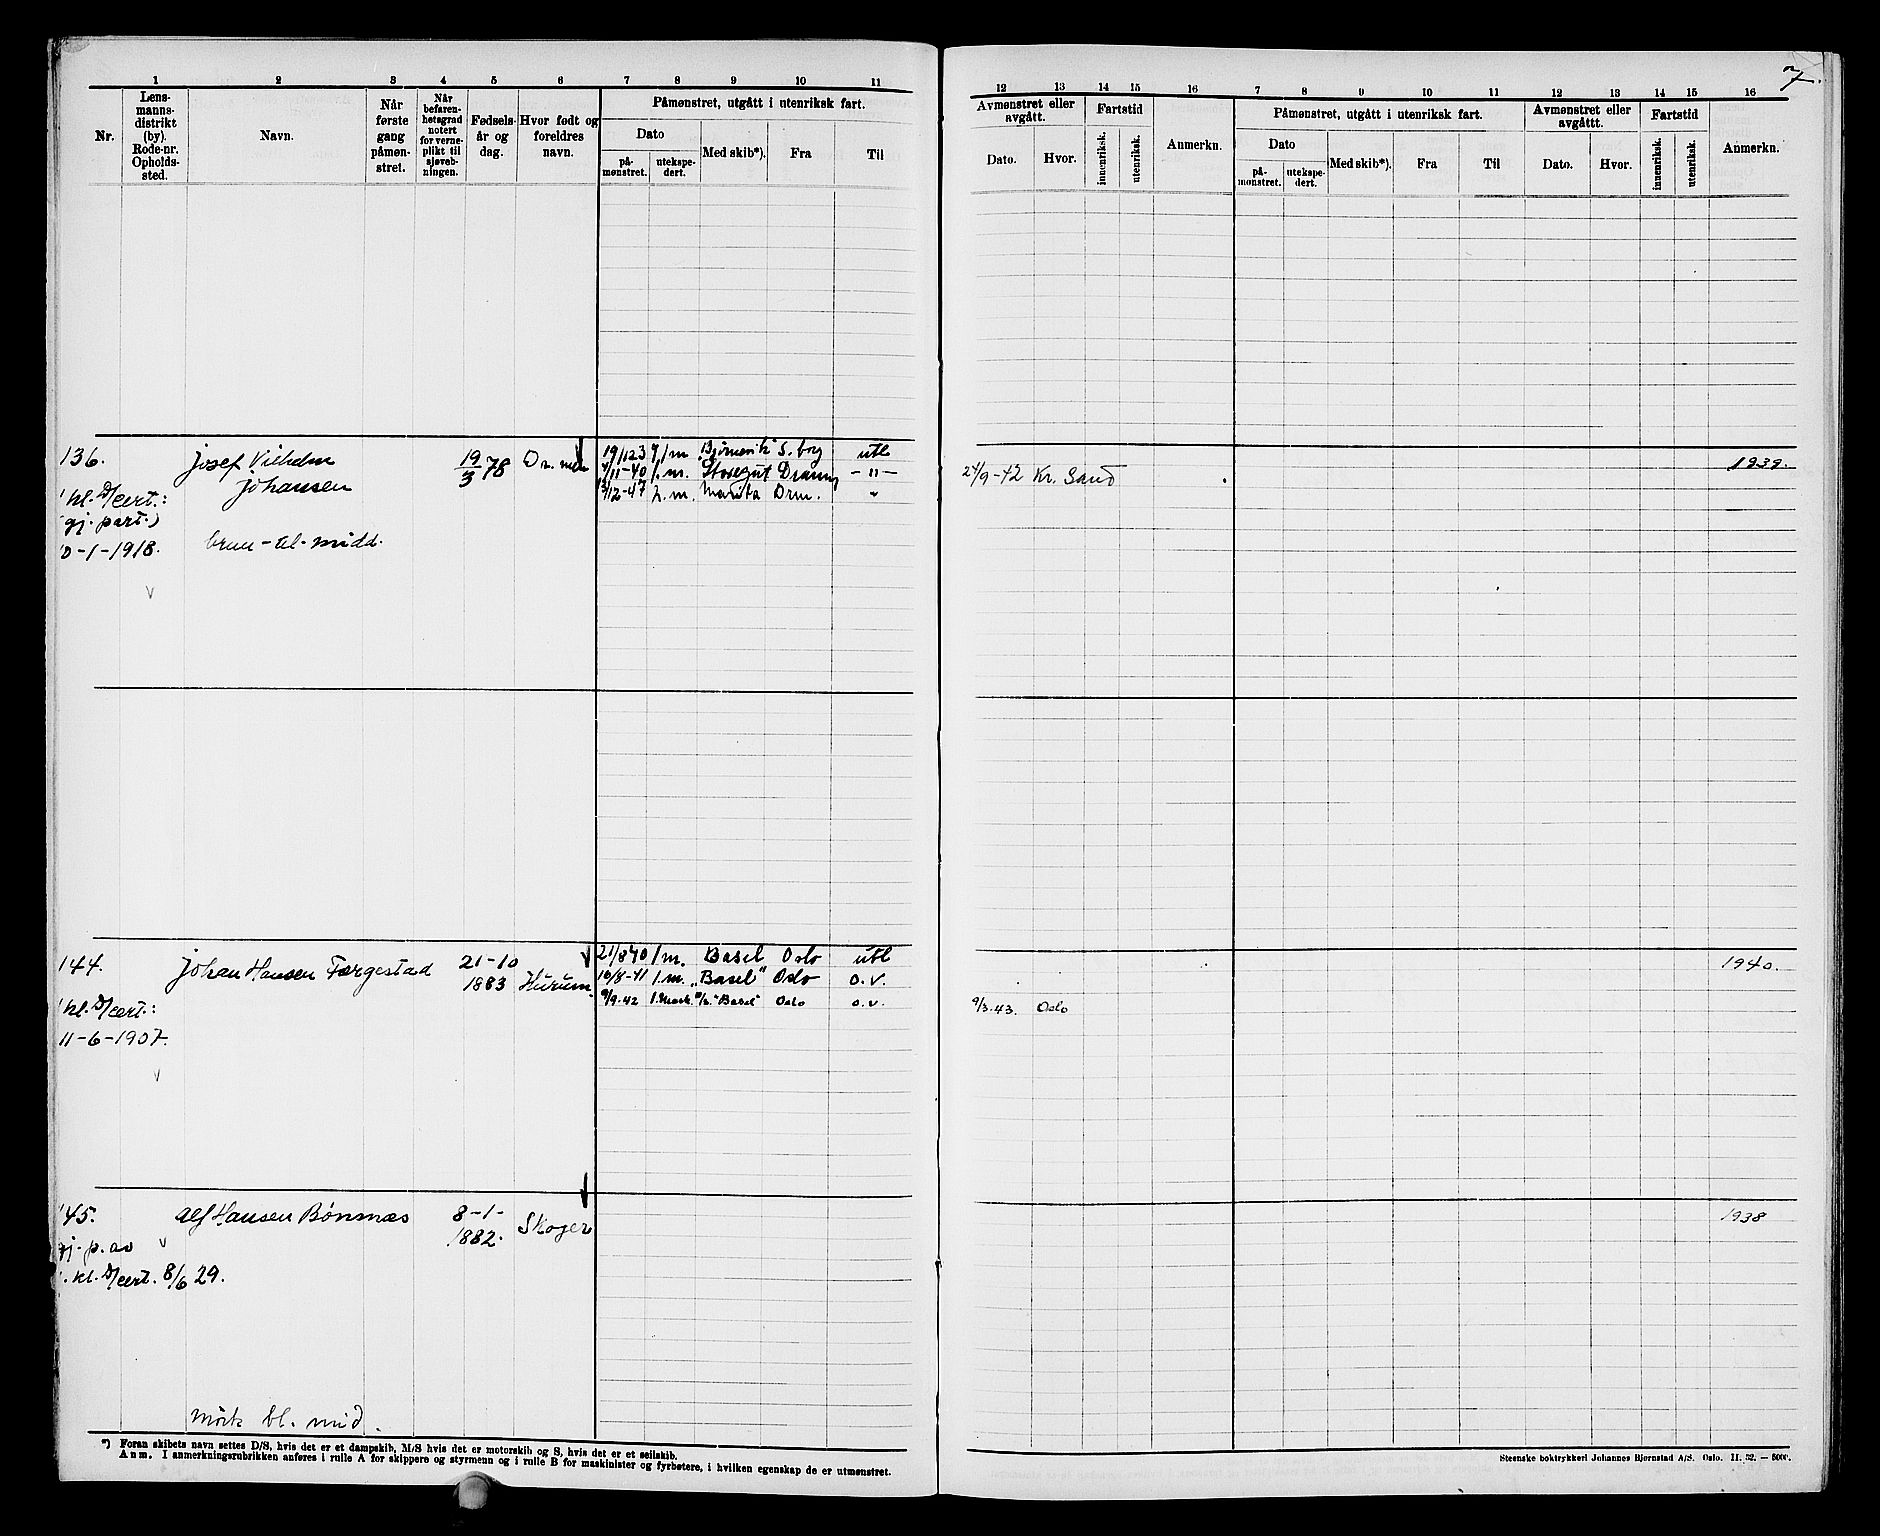 1 2 3 4 5 6 7 8 9 10 11
Nr.
Lens-
manns-
distrikt
(by).
Rode-nr.
Opholds-
sted.
Navn.
Når
første
gang
påmøn-
stret.
Når
befaren-
hetsgrad
notert
for verne-
plikt til
sjøveb-
ningen.
Fødsels-
år og
dag.
Hvor født og
foreldres
navn.
Påmønstret, utgått i utenriksk fart.
Dato
på-
mønstret.
utekspe-
dert.
Med skib*).
Fra
Til
136.
Josef Vilhelm
Johansen
19/3 78
Drmen
19/12 3 1/m Bjørnvik S.borg utl
/11-40 1.m. Storegut Dramm -"-
/12-47 2.m. Marita Drm. "
kl. D/cert.:
gj. part.)
0-1-1918.
brun-bl-midd.
144.
Johan Hansen Færgestad
21-10
1883
Hurum.
21/8 40 1m. Basel Oslo utl
16/8-41 1.m. „Basel" Oslo o.v.
9/9.42 1.mask. "Basel" Oslo o.v.
kl. D/cert.:
11-6-1907.
145.
Alf Hansen Bönsnæs
8-1-
1882.
Skoger
gj. p. av
. kl. D/cert. 8/6 29.
mörk bl. mid.
*) Foran skibets navn settes D/S, hvis det er et dampskib, M/S hvis det er motorskib og S, hvis det er et seilskib.
Anm. I anmerkningsrubrikken anføres i rulle A for skippere og styrmenn og i rulle B for maskinister og fyrbøtere, i hvilken egenskap de er utmønstret.
7.
12 13 14 15 16 7 8 9 10 11 12 13 14 15 16
Avmønstret eller
avgått.
Dato.
Hvor.
Fartstid
innenriksk.
utenriksk.
Anmerkn.
Påmønstret, utgått i utenriksk fart.
Dato
på-
mønstret.
utekspe-
dert.
Med skib*).
Fra
Til
Avmønstret eller
avgåttt.
Dato.
Hvor.
Fartstid
innenriksk.
utenriksk.
Anmerkn.
24/9-42 Kr. Sand
1939.
1940.
9/3.43. Oslo
1938
Steenske boktrykkeri Johannes Bjørnstad A/S. Oslo. II. 32. — 5000.